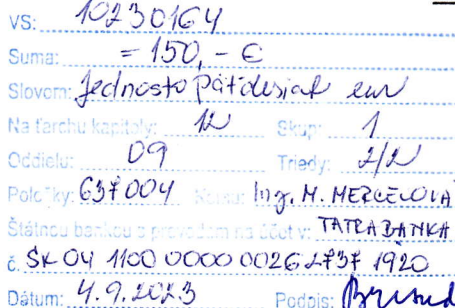 VS: 10230164
Suma: = 150,- €
Slovom: Jednostopäťdesiat eur
Na ťarchu kapitoly: 12 Skup: 1
Oddielu: 09 Triedy: 2/2
Položky: 637004 Ing. M. MERCELOVÁ
Štátnou bankou s prevodom na účet v: TATRA BANKA
č. SK 04 1100 0000 0026 2737 1920
Dátum: 4.9.2023 Podpis: